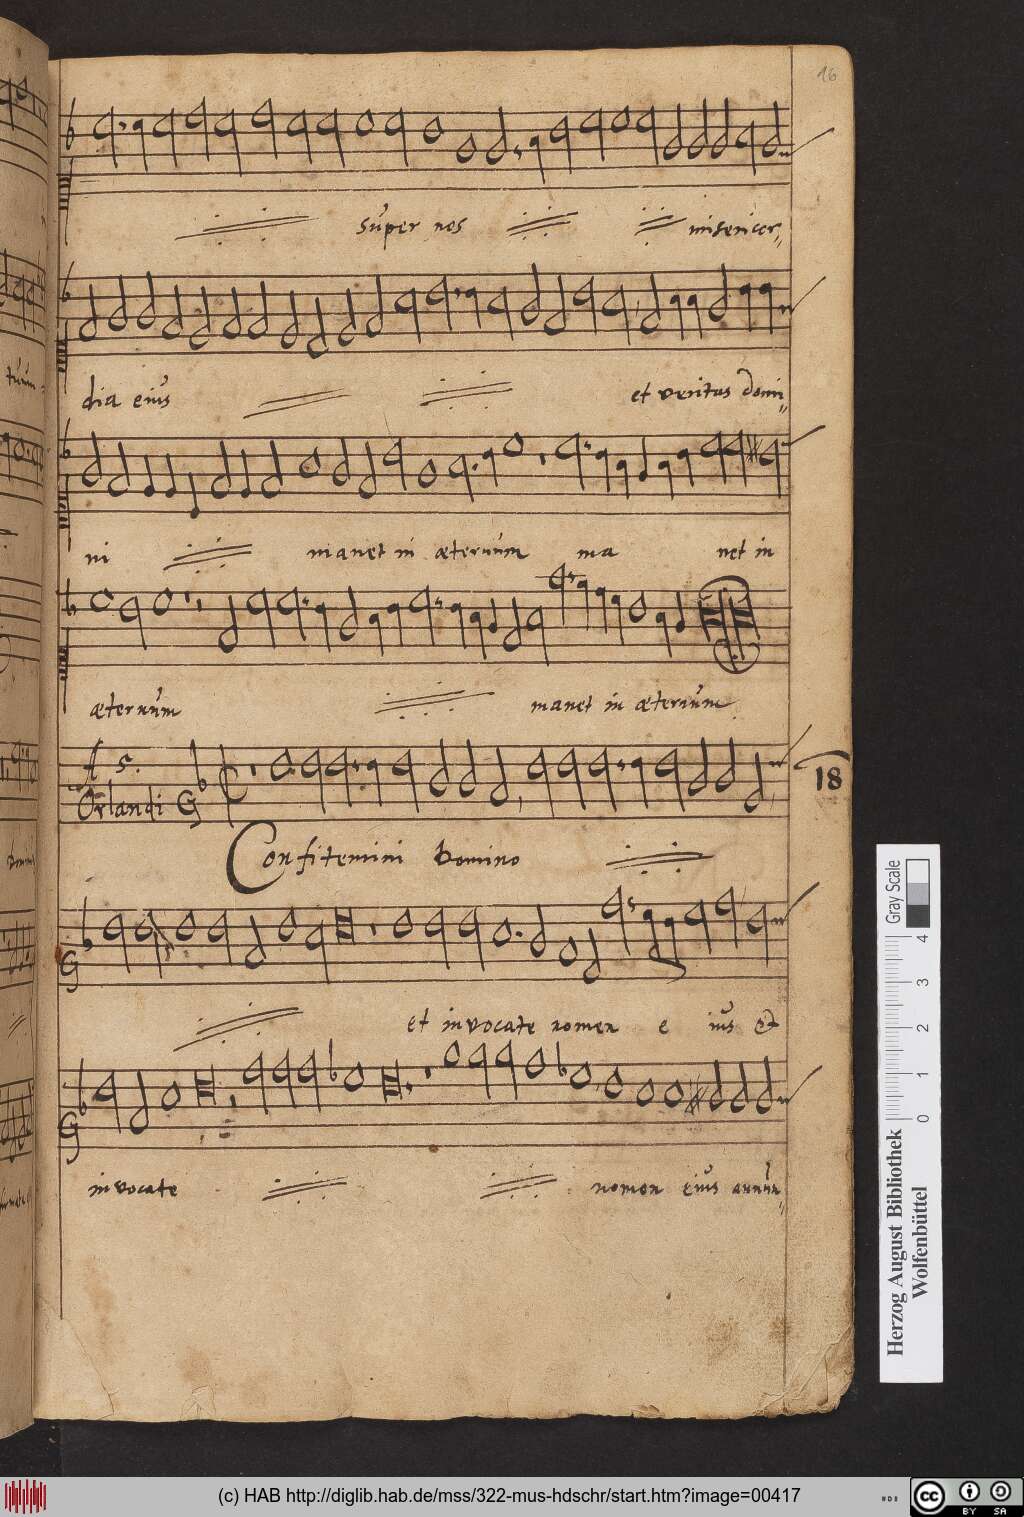 16
super nos misericor„
dia eius et veritas domi„
ni manet in æternum ma net in
æternum manet in æternum
A 5.
Orlandi
18
Confitemini Domino
et invocate nomen e ius et
invocate nomen eius annun„
Gray Scale
0 1 2 3 4
Herzog August Bibliothek
Wolfenbüttel
(c) HAB http://diglib.hab.de/mss/322-mus-hdschr/start.htm?image=00417
cc BY SA